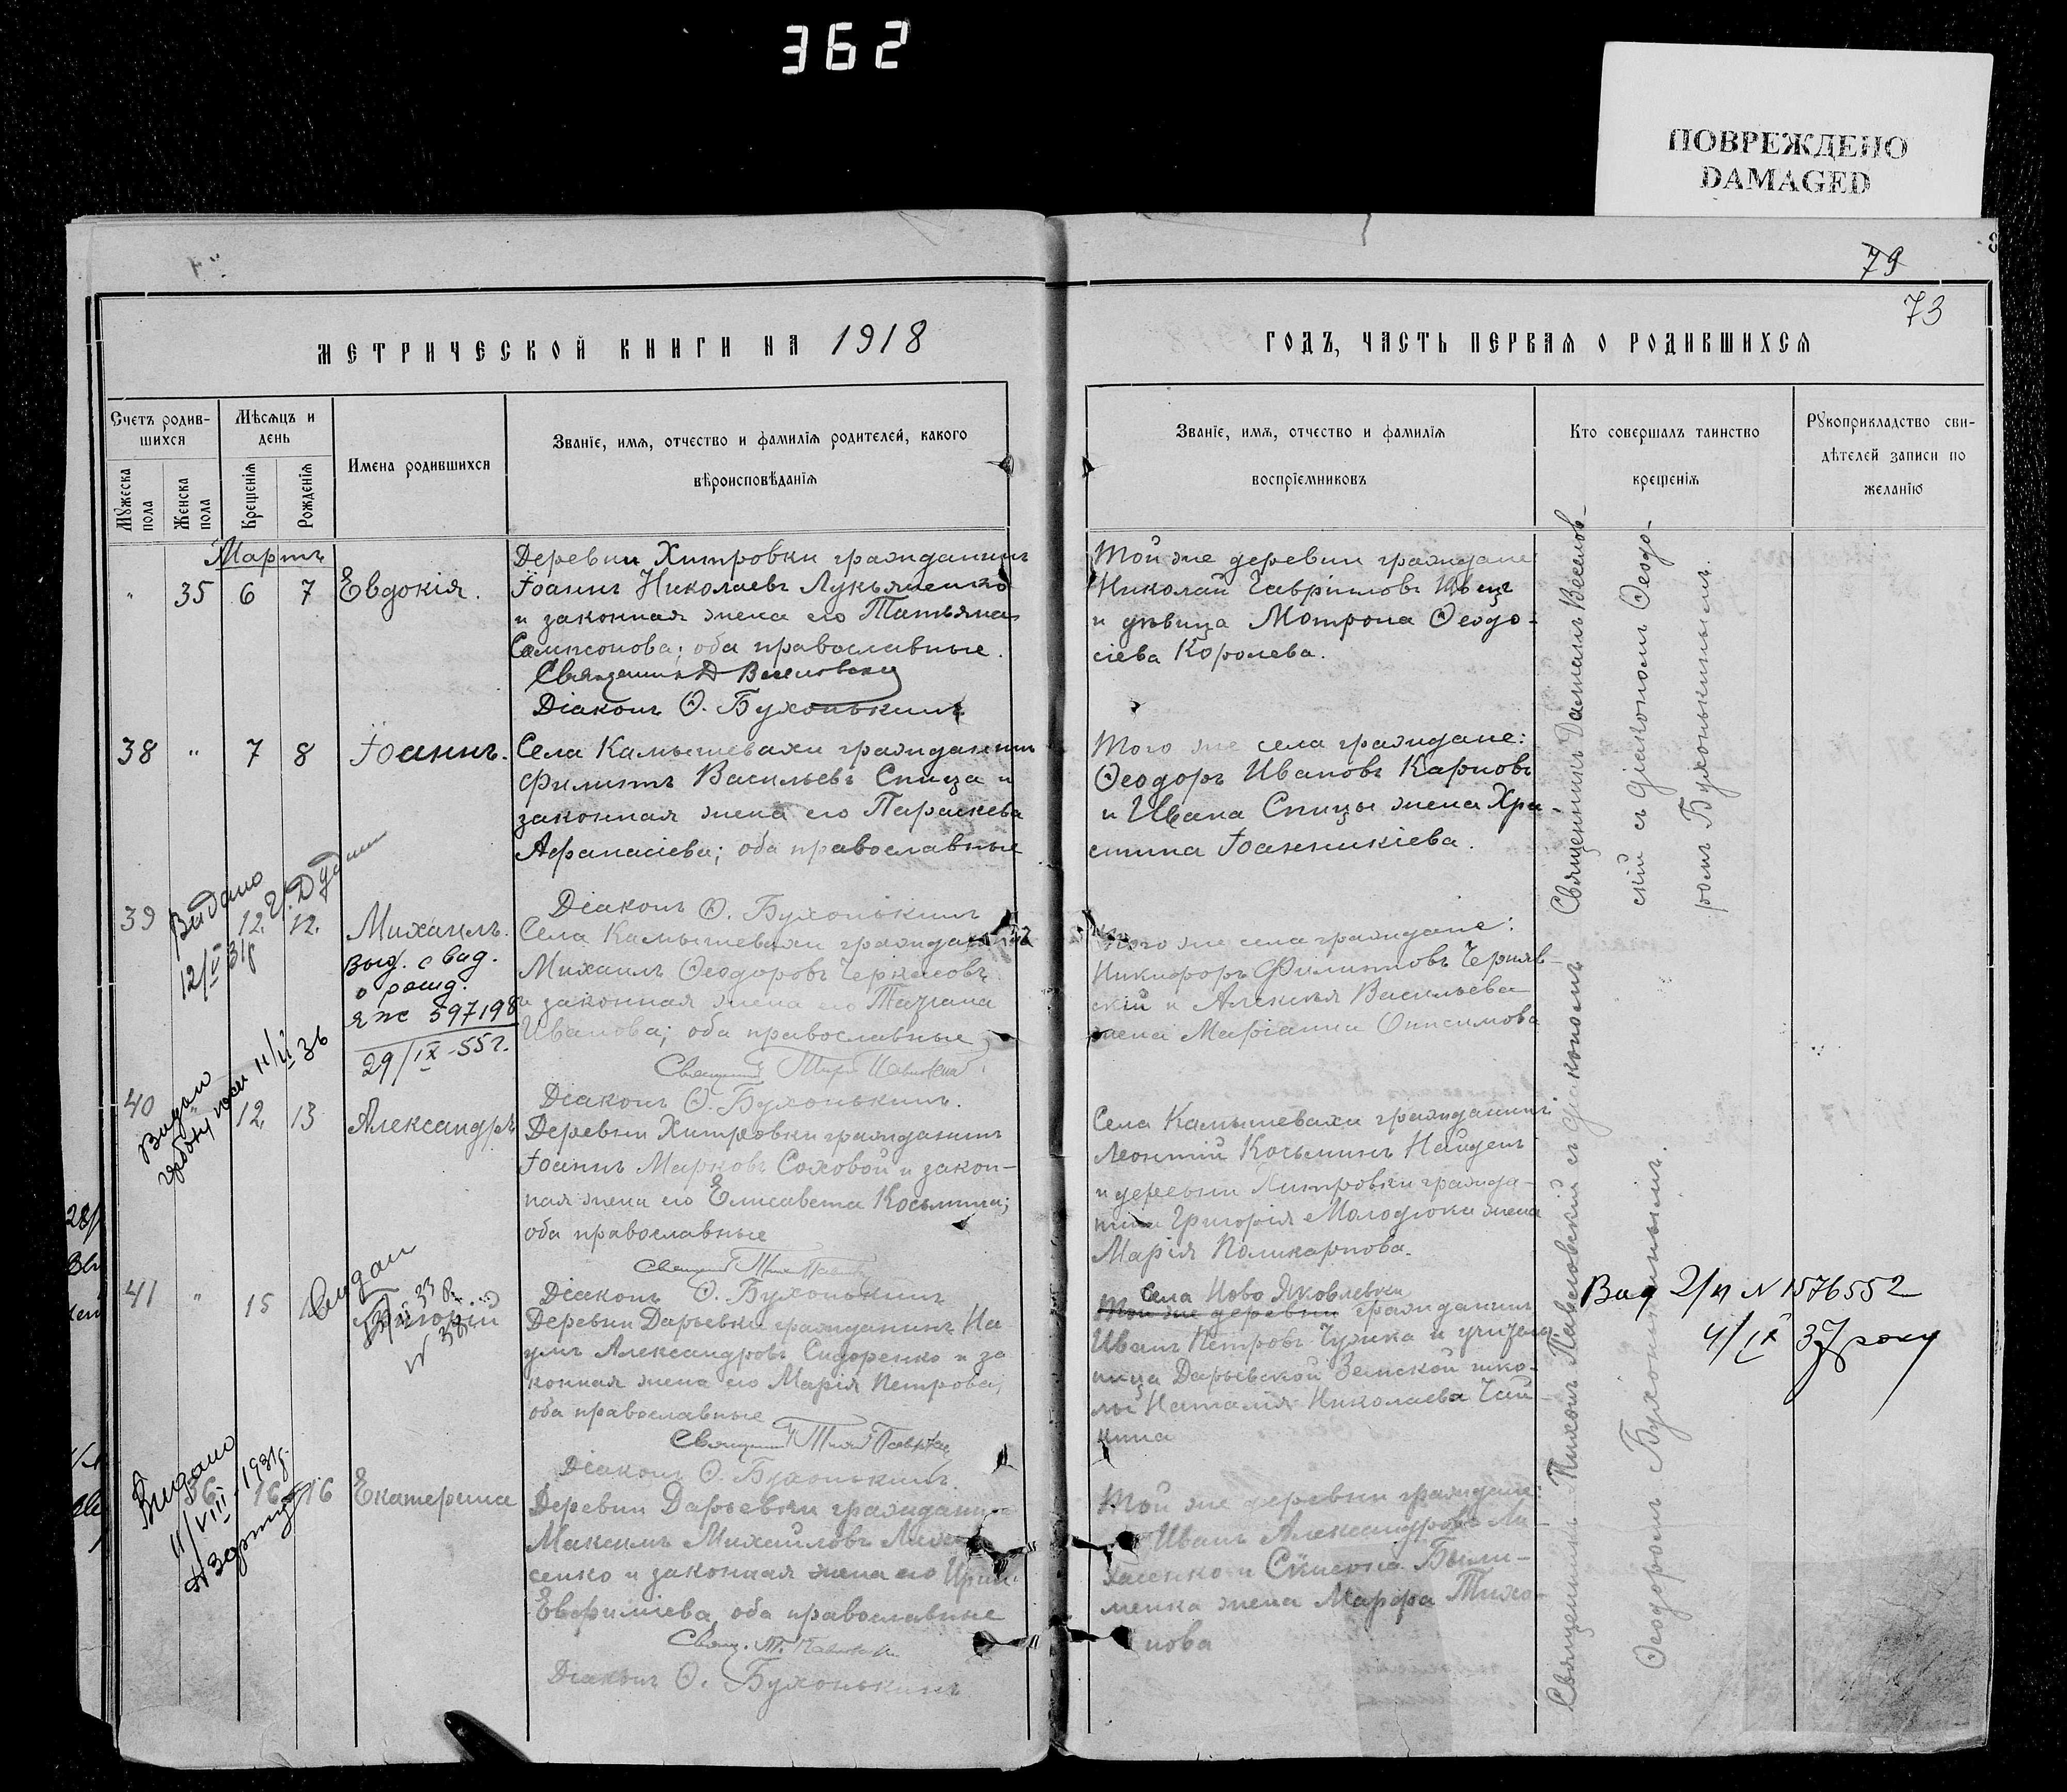 362
ПОВРЕЖДЕНО
DAMAGED
79
73
МЕТРИЧЕСКОЙ КНИГИ НА 1918
ГОДЪ, ЧАСТЬ ПЕРВАЯ О РОДИВШИХСЯ
Счетъ родив-
шихся
Мужеска
пола
Женска
пола
Мѣсяцъ и
день
Крещенія
Рожденія
Имена родившихся
Званіе, имя, отчество и фамилія родителей, какого
вѣроисповѣданія
Званіе, имя, отчество и фамилія
воспріемниковъ
Кто совершалъ таинство
крещенія
Рукоприкладство сви-
дѣтелей записи по
желанію
Мартъ
" 35 6 7 Евдокія.
Деревни Хитровки гражданинъ
Іоаннъ Николаевъ Лукьяненко
и законная жена его Татьяна
Сампсонова; оба православные.
Священникъ Д Веселовскій
Діаконъ Ѳ. Бухонькинъ
Той же деревни граждане
Николай Гавріиловъ Швецъ
и дѣвица Мотрона Ѳеодо-
сіева Королева.
Священникъ Даміанъ Веселов-
скій съ діакономъ Ѳеодо-
ромъ Бухонькинымъ.
38 " 7 8 Іоаннъ.
Села Камышевахи гражданинъ
Филиппъ Васильевъ Спица и
законная жена его Параскева
Афанасіева; оба православные
Діаконъ Ѳ. Бухонькинъ
Того же села граждане:
Ѳеодоръ Ивановъ Карповъ
и Ивана Спицы жена Хри-
стина Іоанникіева.
39 12. 12. Михаилъ.
Видано
12/V 31р
Выд. свид.
о рожд.
ЯЖ 597198
29/IX-55г.
Села Камышевахи гражданинъ
Михаилъ Ѳеодоровъ Черкасовъ
и законная жена его Татіана
Иванова; оба православные
Діаконъ Ѳ. Бухонькинъ.
Того же села граждане:
Никифоръ Филипповъ Черняв-
скій и Алексѣя Васильева
жена Маріанна Онисимова
40 " 12. 13 Александръ
Видан
36
Деревни Хитровки гражданинъ
Іоаннъ Марковъ Соховой и закон-
ная жена его Елисавета Косьмина;
оба православные
Діаконъ Ѳ. Бухонькинъ
Села Камышевахи гражданинъ
Леонтій Косьминъ Найденъ
и деревни Хитровки гражда-
нина Григорія Молодюка жена
Марія Поликарпова.
41 " 15 Григорій
Видан
Деревни Дарьевки гражданинъ На
умъ Александровъ Сидоренко и за
конная жена его Марія Петрова;
оба православные
Діаконъ Ѳ. Бухонькинъ.
Села Ново Яковлевки
Той же деревни гражданинъ
Иванъ Петровъ Чужка и учитель-
ница Дарьевской Земской шко-
лы Наталія Николаева Чай-
кина
Вид 2/п N 1576552
4/IX 37 року
36 16 16 Екатерина
Видано
11/VIII-1931р.
Деревни Дарьевки гражданинъ
Максимъ Михайловъ
сенко и законная жена его Ирина
Евфиміева, оба православные
Свящ. Т. Павловскій
Діаконъ Ѳ. Бухонькинъ
Той же деревни граждане:
Иванъ Александровъ Ли
хасенко и Сѵмеона Были-
менка жена Марфа Тихо-
нова
Священникъ Тихонъ Павловскій съ діакономъ
Ѳеодоромъ Бухонькинымъ.